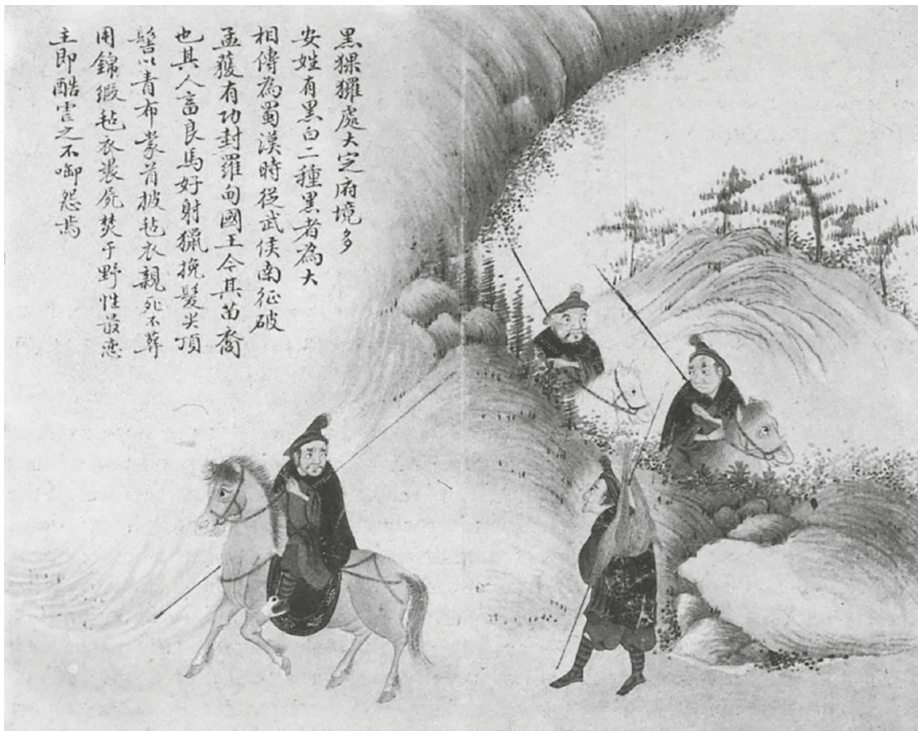 黑猓玀處大定府境多
安姓有黑白二種黑者為大
相傳為蜀漢時從武侯南征破
孟獲有功封羅甸國王今其苗裔
也其人畜良馬好射獵挽髮尖頂
髻以青布蒙首披毡衣親死不葬
用錦緞毡衣裹屍焚于野性最戀
主即酷虐之不啣怨焉